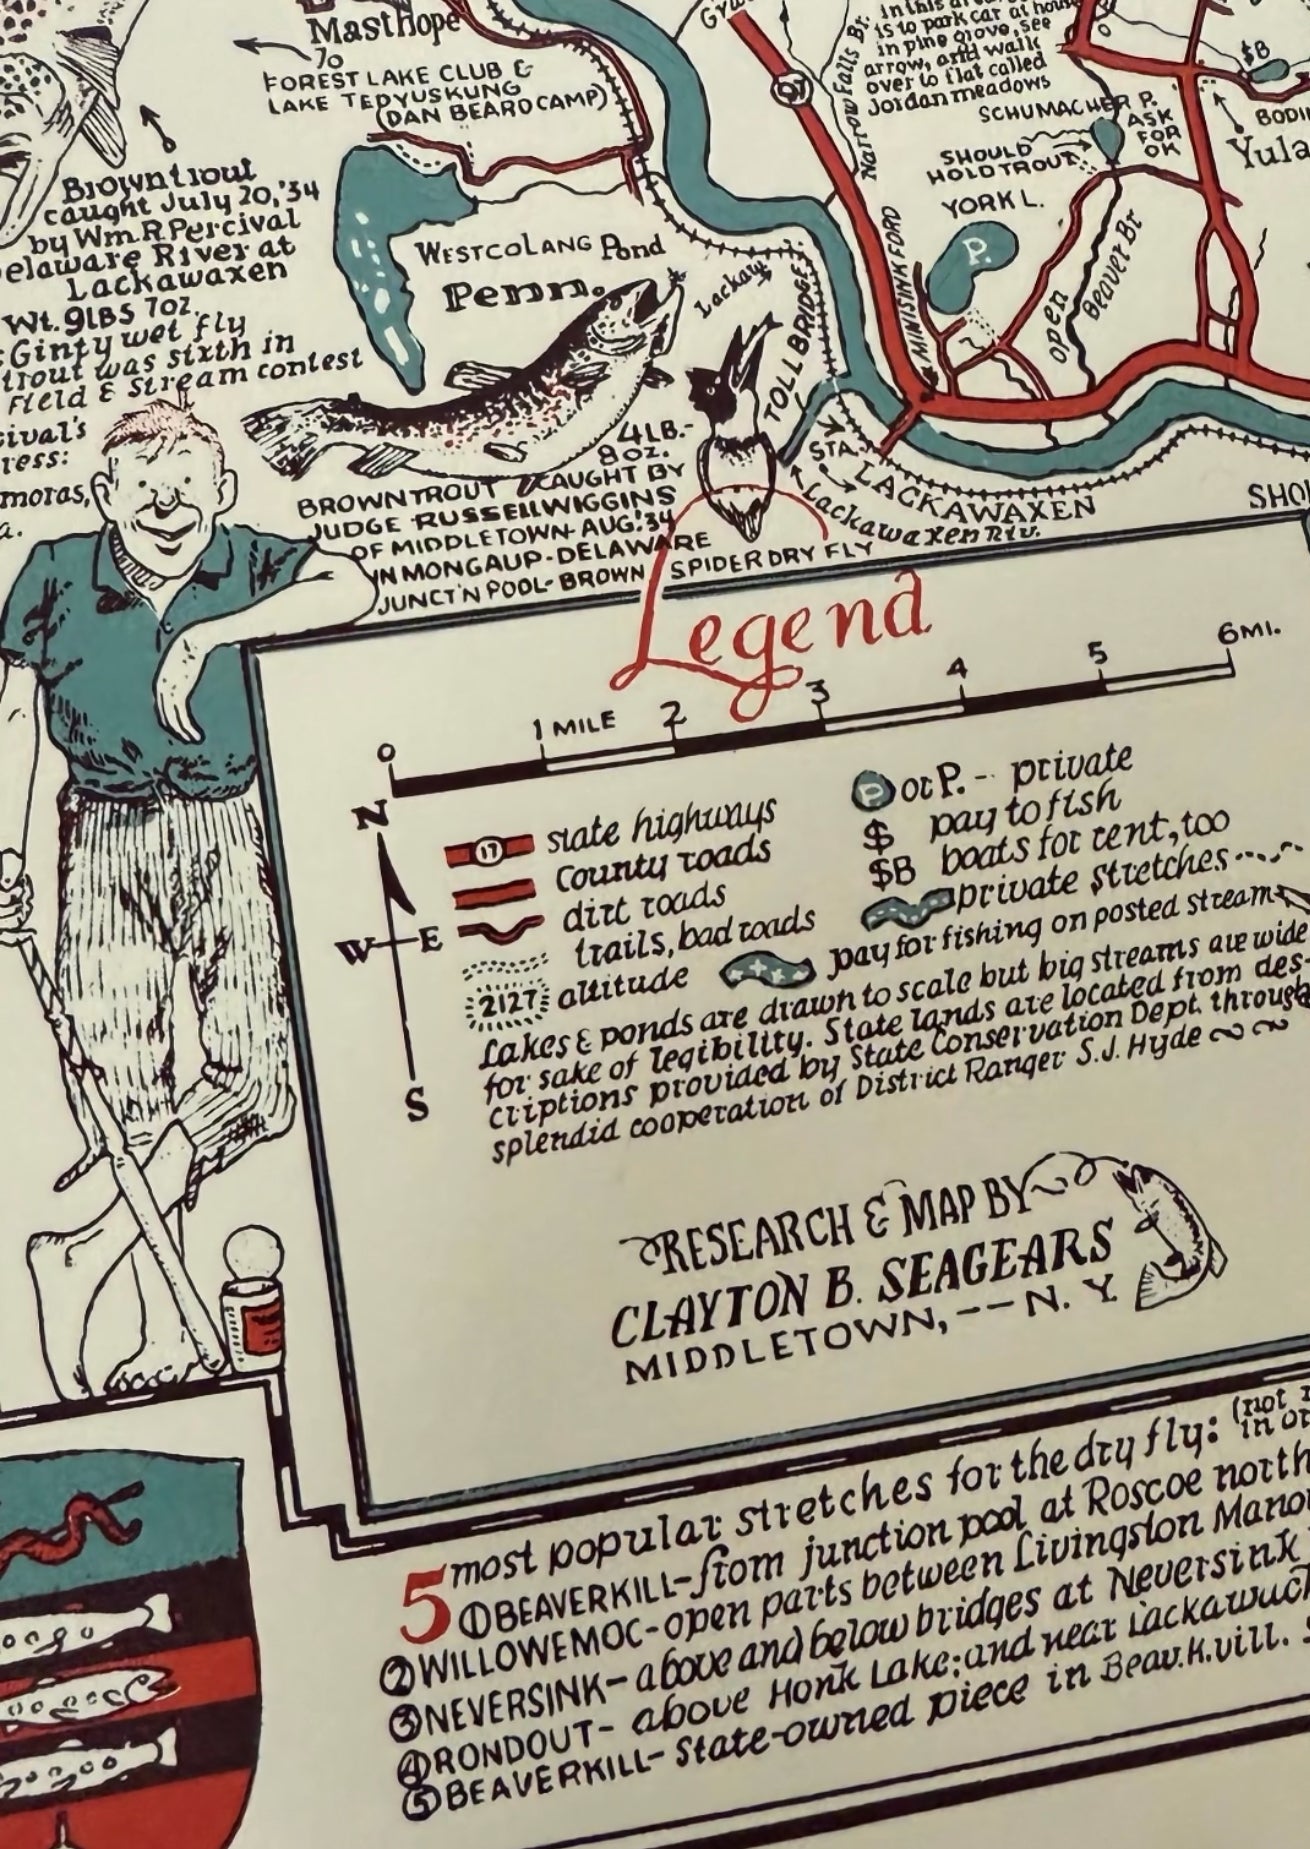 Masthope
To
FOREST LAKE CLUB &
LAKE TEDYUSKUNG
(DAN BEARD CAMP)
in this
is to park car at hou
in pine grove, see
arrow, and walk
over to flat called
Jordan meadows
Narrow Falls Br.
97
SCHUMACHER P.
ASK
FOR
OK
SHOULD
HOLD TROUT
YORK L.
P.
$B
BODI
Yula
Brown trout
caught July 20,'34
by Wm. R. Percival
elaware River at
Lackawaxen
Wt. 9LBS 7oz.
Ginty wet fly
trout was sixth in
Field & Stream contest
ival's
ress:
moras,
a.
WESTCOLANG Pond
Penn.
Lackaw
TOLL BRIDGE
MINISINK FORD
open
Beaver Br
STA.
LACKAWAXEN
Lackawaxen Riv.
SHO
4LB.-
8oz.
BROWN TROUT CAUGHT BY
JUDGE RUSSELL WIGGINS
OF MIDDLETOWN-AUG.'34
IN MONGAUP-DELAWARE
JUNCT'N POOL-BROWN SPIDER DRY FLY
Legend
0 1 MILE 2 3 4 5 6 MI.
N
W E
S
17 state highways
County roads
dirt roads
trails, bad roads
2127 altitude
P or P. - private
$ pay to fish
$B boats for rent, too
private stretches
pay for fishing on posted stream
Lakes & ponds are drawn to scale but big streams are wide
for sake of legibility. State lands are located from des-
criptions provided by State Conservation Dept. through
splendid cooperation of District Ranger S.J. Hyde
RESEARCH & MAP BY
CLAYTON B. SEAGEARS
MIDDLETOWN, -- N. Y.
5 most popular stretches for the dry fly: (not
in or
① BEAVERKILL-from junction pool at Roscoe north
② WILLOWEMOC-open parts between Livingston Manor
③ NEVERSINK-above and below bridges at Neversink
④ RONDOUT-above Honk Lake; and near Lackawack
⑤ BEAVERKILL-State-owned piece in Beav.K.vill.